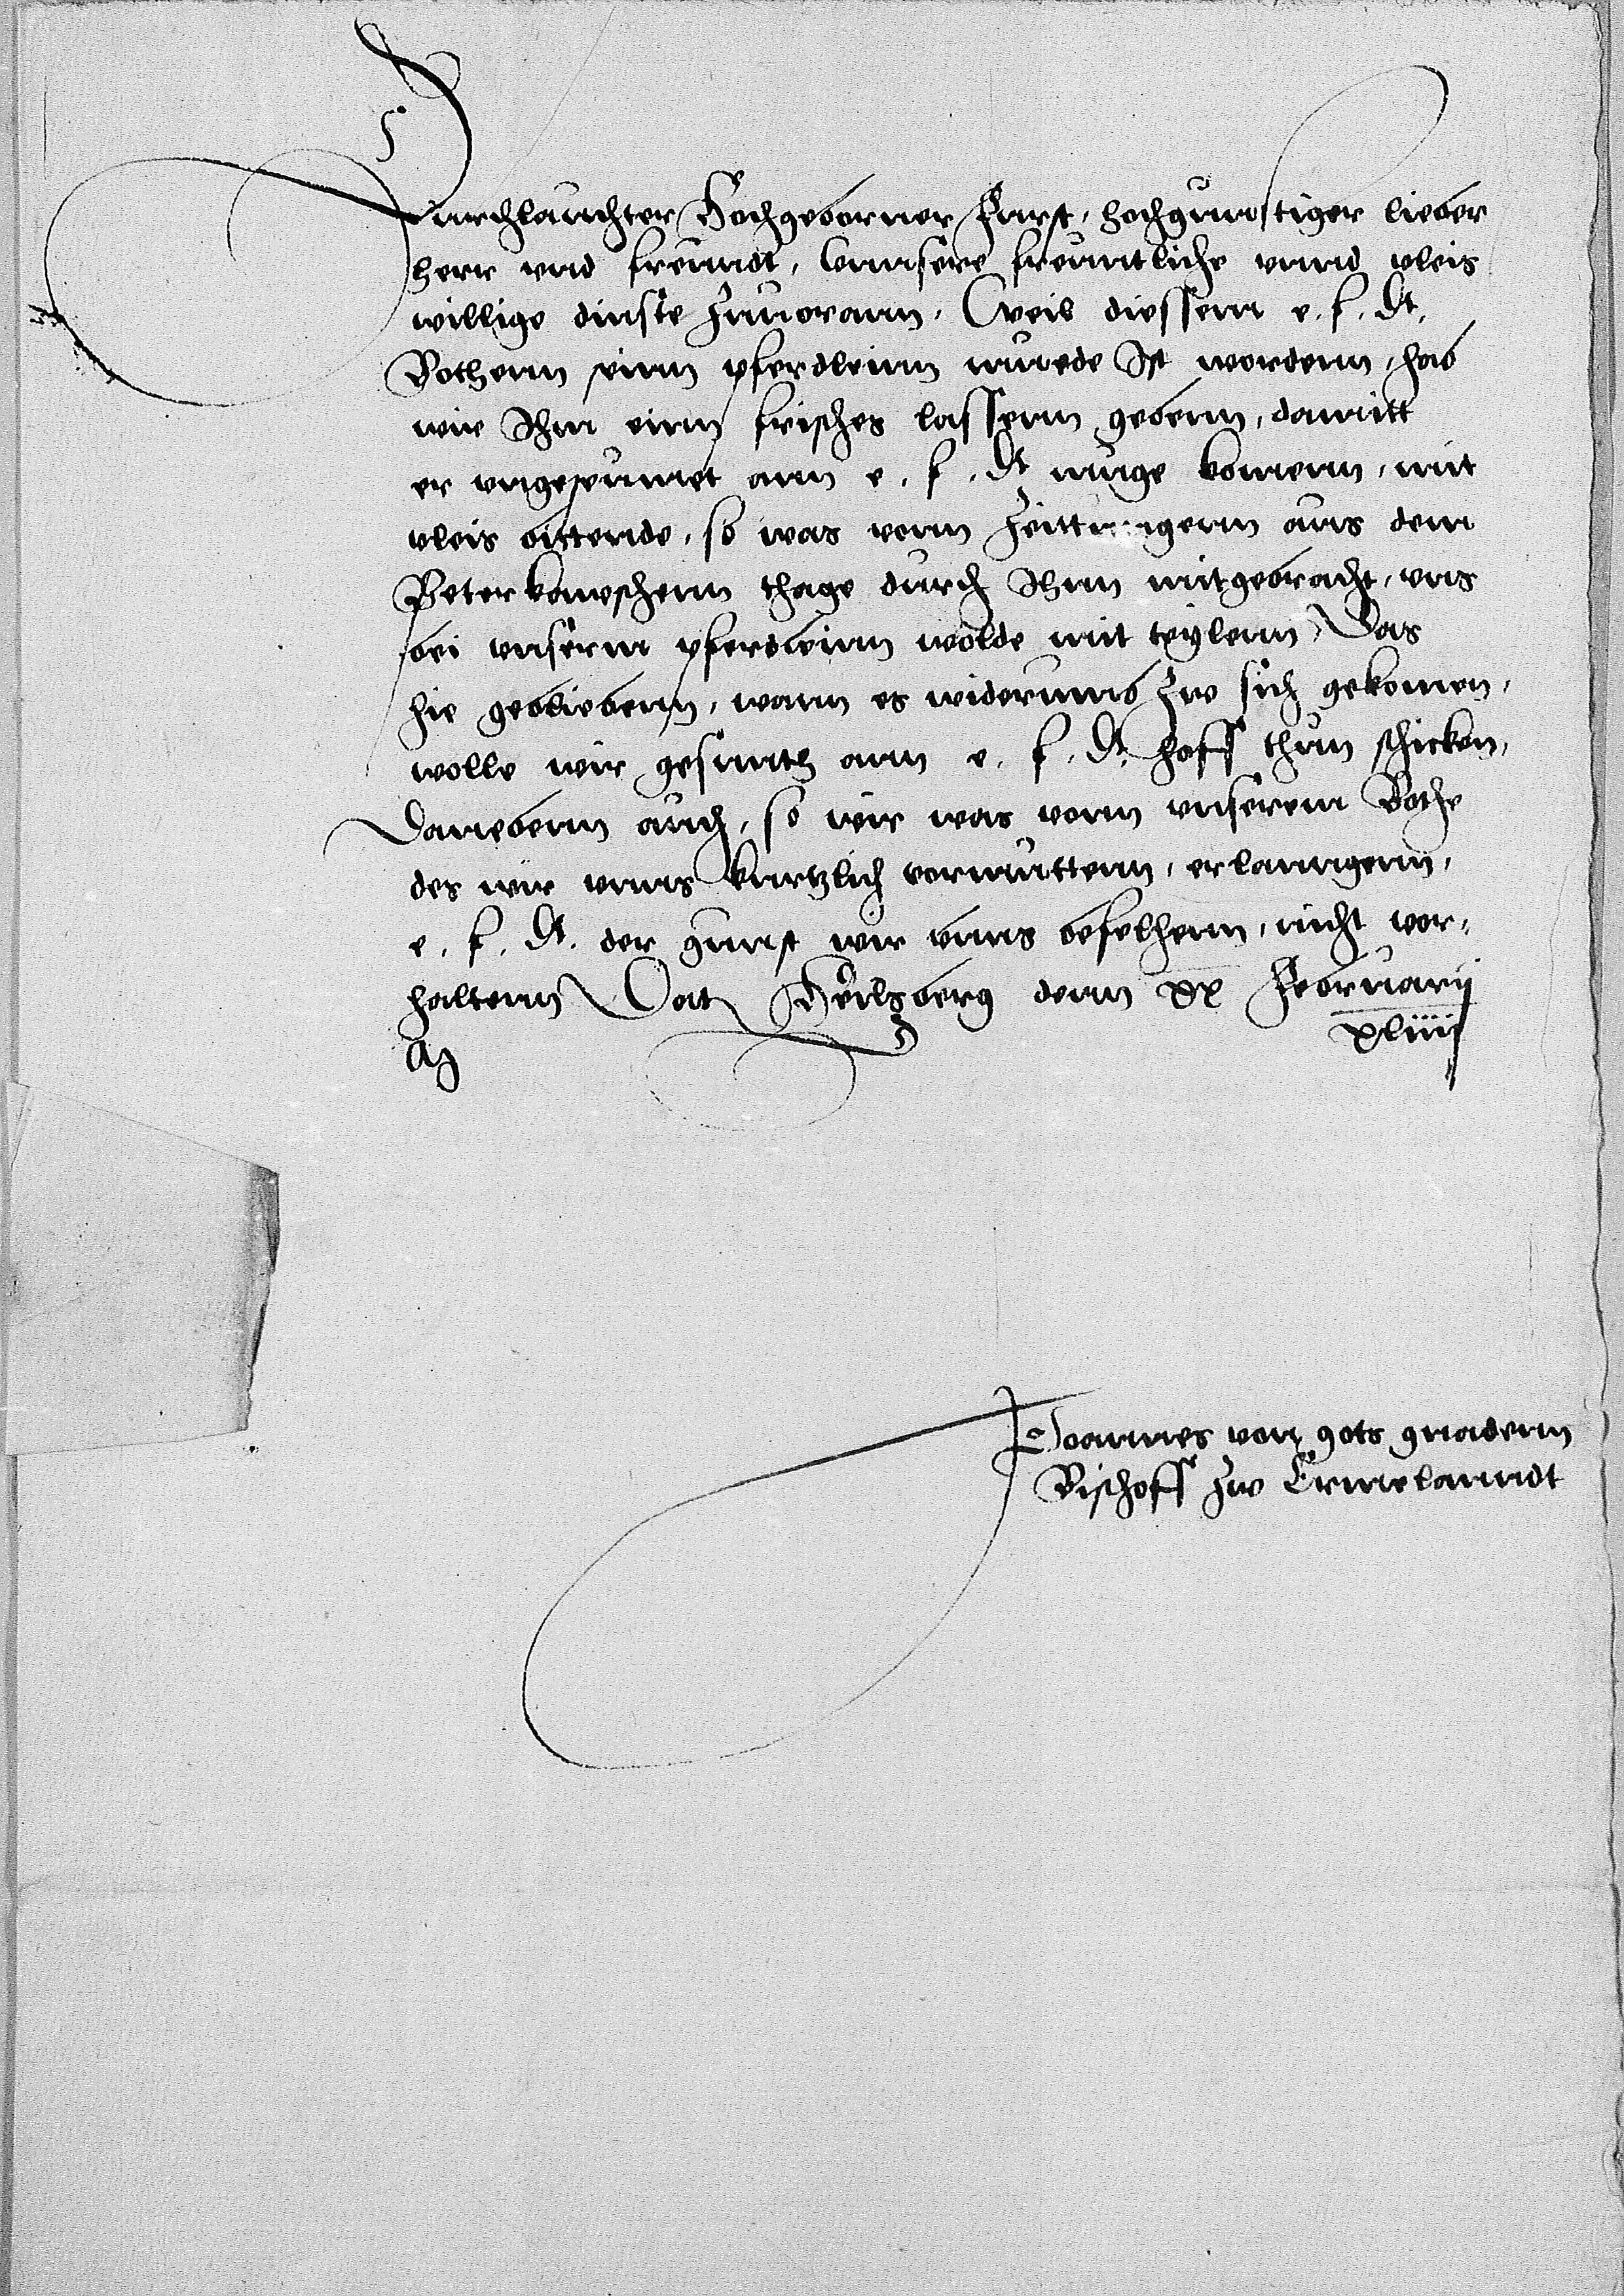 Durchlauchter Hochgeborner Furst, hochgunstiger lieber
herr vnd freundt, Vnnsere freuntliche vnnd vleis
willige dinste zuuorann. Weil diessem e. f. Dt.
Bothenn seinn pferdleinn muede Ist wordenn, hab
wir Ihm einn frisches lassenn gebenn, damitt
er vngeseumet ann e. f. Dt muge komenn, mit
vleis bittende, so was vonn Zeittungenn aus dem
Peterkawschenn thage durch Ihnn mitgebracht, vns
bei vnserm pferdleinn wolde mit teylenn, Das
hie gebliebenn, wann es widerumb zw sich gekomen,
wolle wir gesunth ann e. f. Dt. hoff thun schicken,
Danebenn auch, so wir was vonn vnserem Bothe
des wir vnns kurtzlich vormuttenn, erlanngenn,
e. f. Dt. der gunst wir vnns befelhenn, nicht vor⸗
haltenn Dat Heilsberg denn XX Februarij
XLiiij
Joannes von gots gnadenn
Bischoff zw Ermelanndt